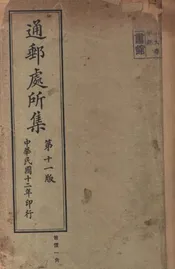 通郵處所集
第十一版
中華民國十二年印行